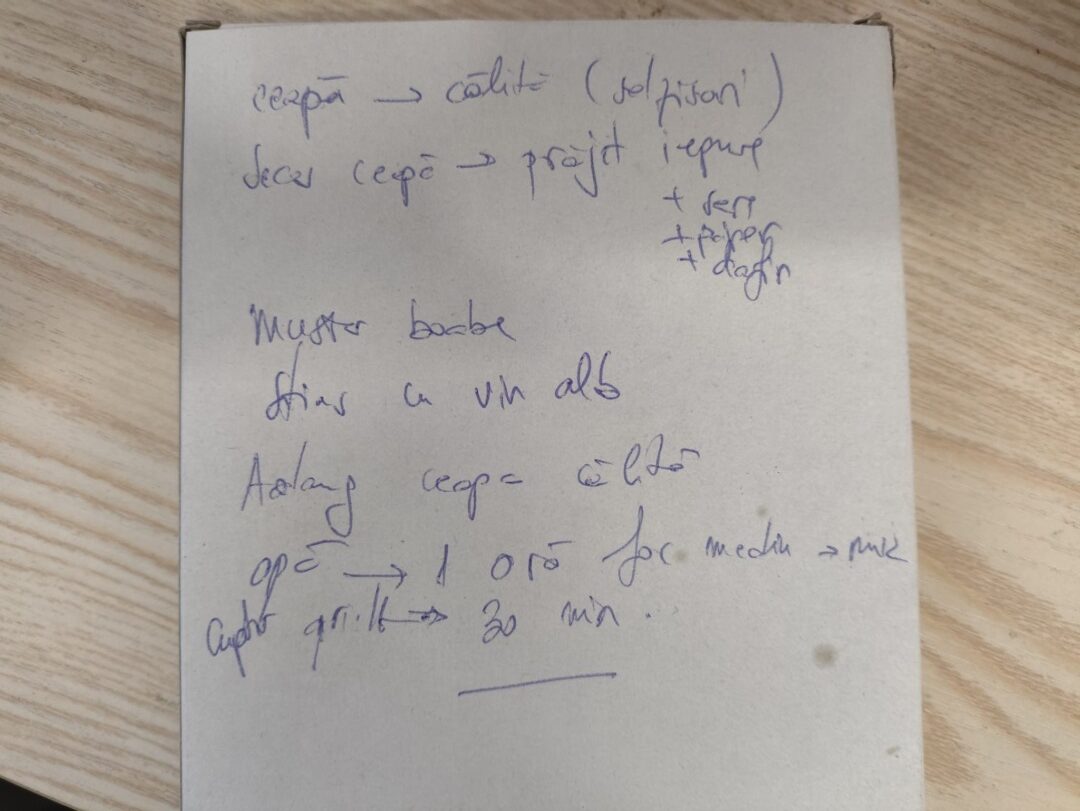 ceapă → călită ( )
ceapă → prăjit iepure
+ sare
+ piper
+ dafin
Muștar boabe
Stins cu vin alb
Adaug ceapa călită
apă → 1 oră foc mediu → mic
Cuptor grill → 30 min.